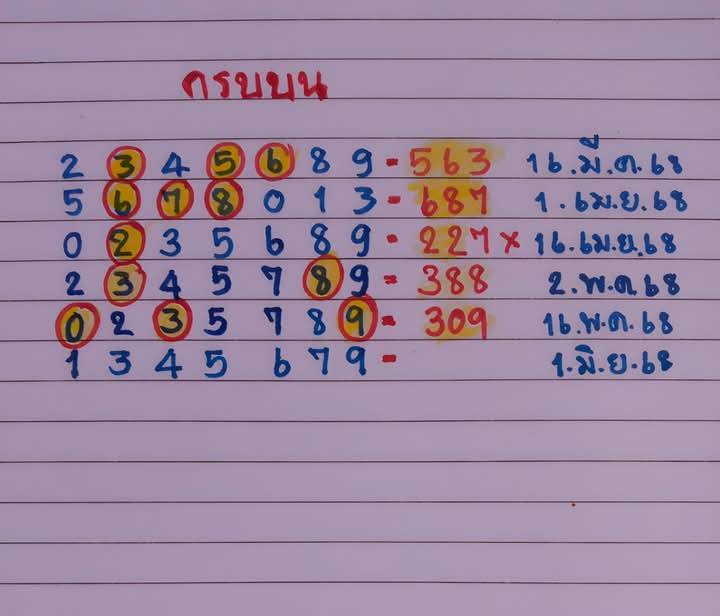 ครบบน
2 3 4 5 6 8 9 - 563 16.มี.ค.68
5 6 7 8 0 1 3 - 687 1.เม.ย.68
0 2 3 5 6 8 9 - 227 × 16.เม.ย.68
2 3 4 5 7 8 9 = 388 2.พ.ค.68
0 2 3 5 7 8 9 = 309 16.พ.ค.68
1 3 4 5 6 7 9 - 1.มิ.ย.68